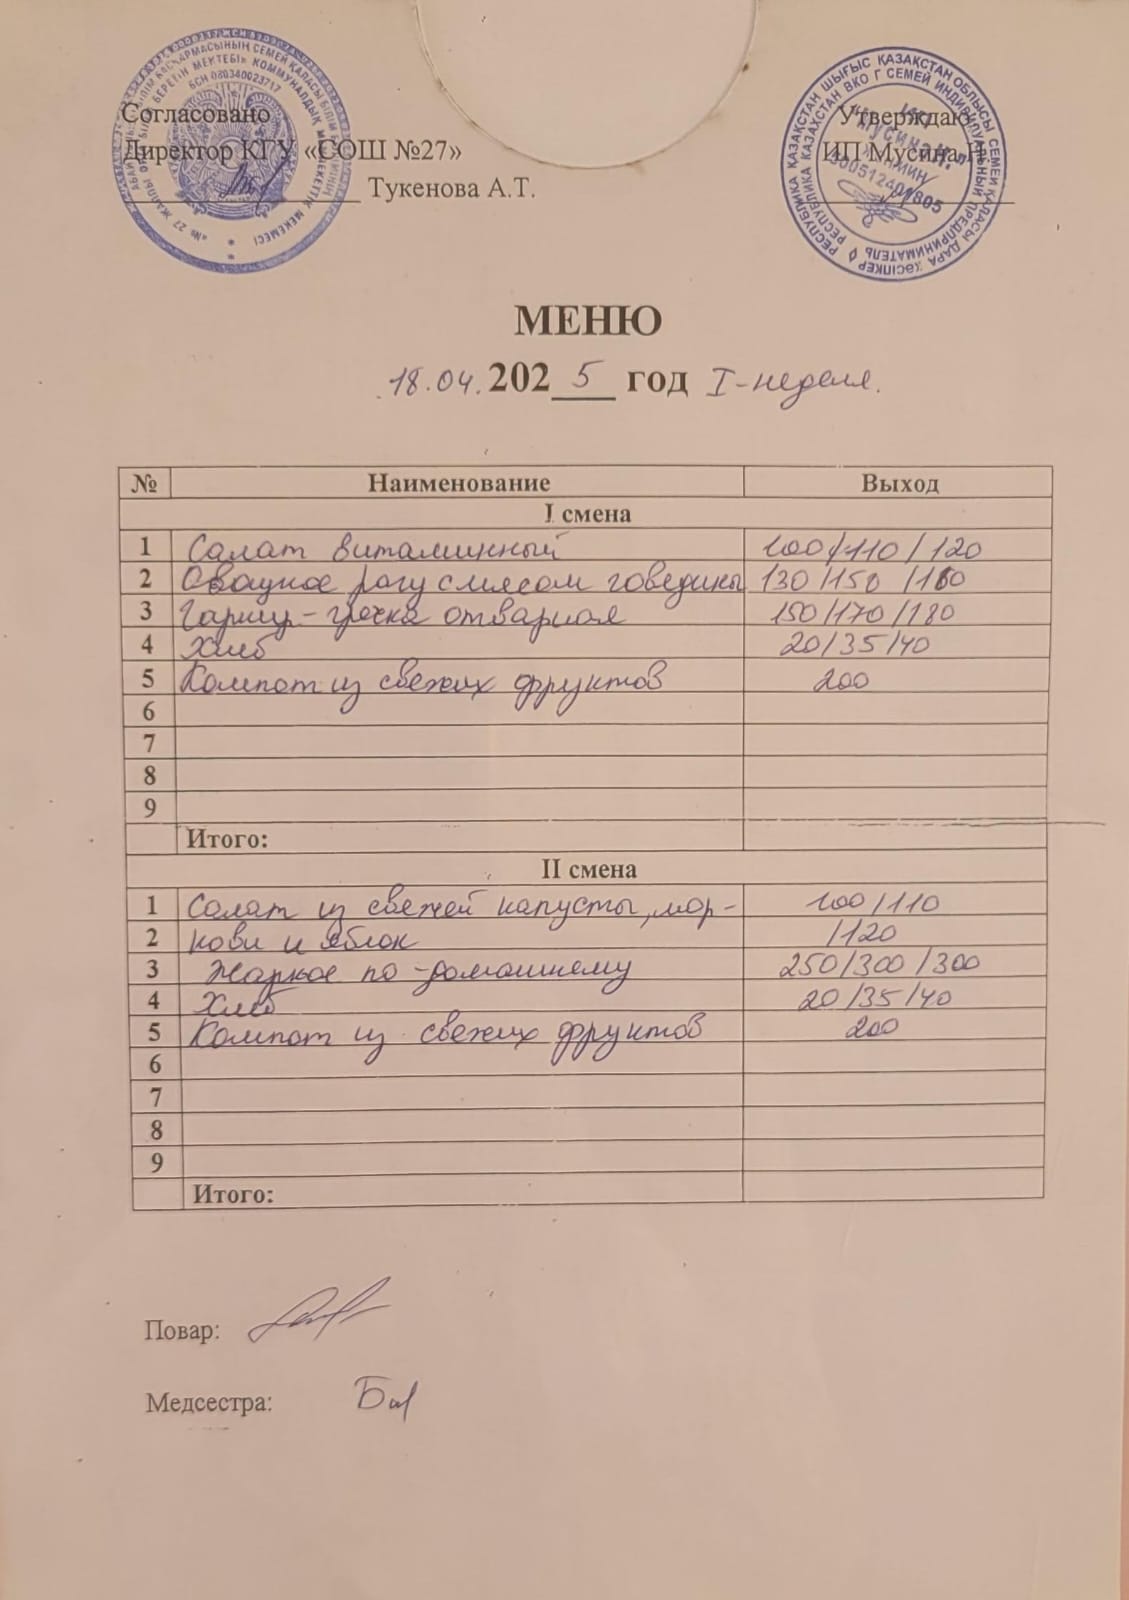 Согласовано
Директор КГУ «СОШ №27»
Тукенова А.Т.
БСН 080340023717
Утверждаю
ИП Мусина Н
РЕСПУБЛИКА ҚАЗАҚСТАН ШЫҒЫС ҚАЗАҚСТАН ОБЛЫСЫ СЕМЕЙ ҚАЛАСЫ ДАРА КӘСІПКЕР
РЕСПУБЛИКА КАЗАХСТАН ВКО Г СЕМЕЙ ИНДИВИДУАЛЬНЫЙ ПРЕДПРИНИМАТЕЛЬ
МЕНЮ
18.04.2025 год I-неделя.
№ Наименование Выход
I смена
1 Салат витаминный 100/110/120
2 Овощное рагу с мясом говедины 130/150/160
3 Гарнир-гречка отварная 150/170/180
4 Хлеб 20/35/40
5 Компот из свежих фруктов 200
6
7
8
9
Итого:
II смена
1 Салат из свежей капусты, мор- 100/110
2 кови и яблок /120
3 Жаркое по-домашнему 250/300/300
4 Хлеб 20/35/40
5 Компот из свежих фруктов 200
6
7
8
9
Итого:
Повар:
Медсестра: